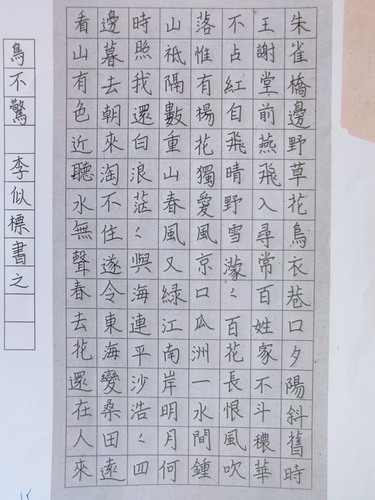 朱雀橋邊野草花烏衣巷口夕陽斜舊時
王謝堂前燕飛入尋常百姓家不斗穠華
不占紅自飛晴野雪濛〻百花長恨風吹
落惟有楊花獨愛風京口瓜洲一水間鍾
山祗隔數重山春風又綠江南岸明月何
時照我還白浪茫〻與海連平沙浩〻四
邊暮去朝來淘不住遂令東海變桑田遠
看山有色近聽水無聲春去花還在人來
鳥不驚 李似標書之